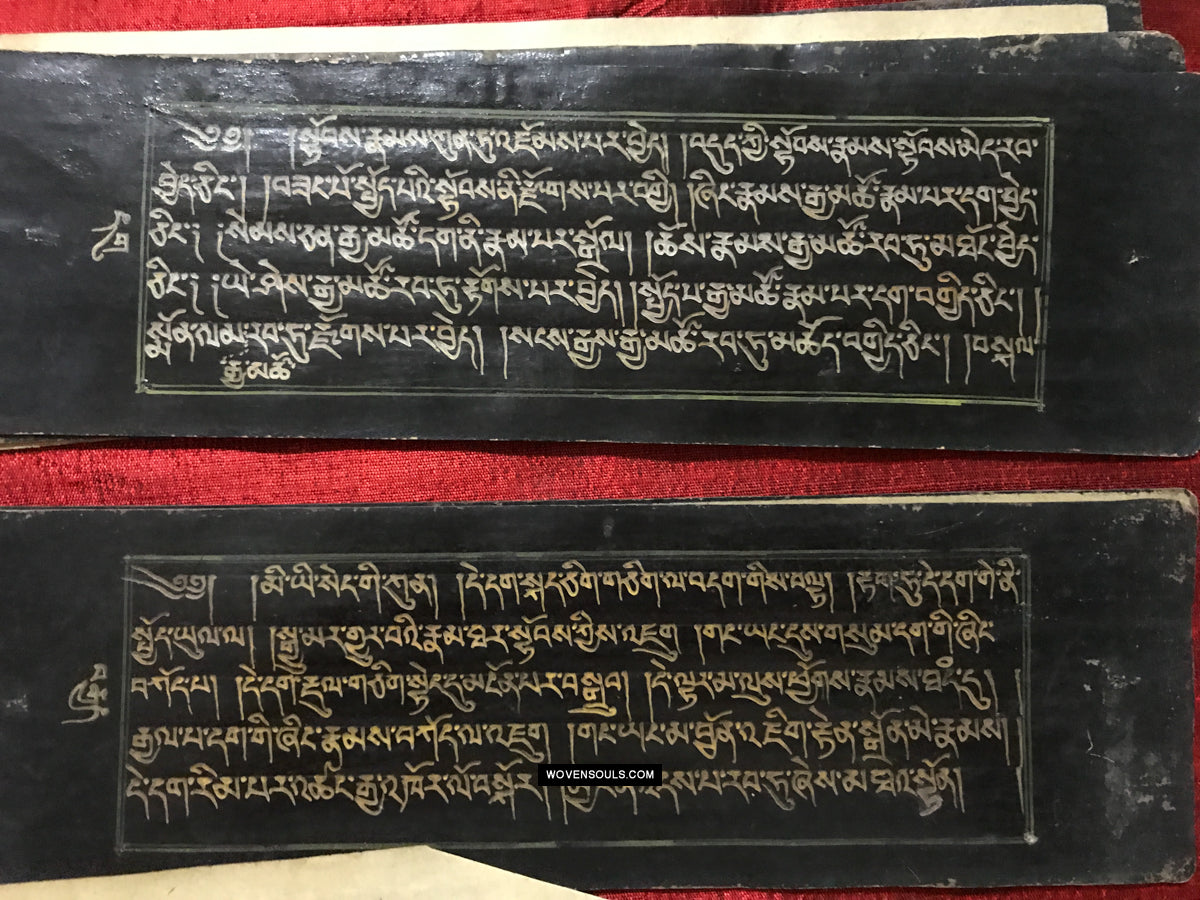 ༄༅། །སྟོབས་རྣམས་ཀུན་ཏུ་འཇོམས་པར་བྱེད། །བདུད་ཀྱི་སྟོབས་རྣམས་སྟོབས་མེད་རབ་
བྱེད་ཅིང་། །བཟང་པོ་སྤྱོད་པའི་སྟོབས་ནི་རྫོགས་པར་བགྱི། །ཞིང་རྣམས་རྒྱ་མཚོ་རྣམ་པར་དག་བྱེད་
ཅིང་། །སེམས་ཅན་རྒྱ་མཚོ་དག་ནི་རྣམ་པར་སྒྲོལ། །ཆོས་རྣམས་རྒྱ་མཚོ་རབ་ཏུ་མཐོང་བྱེད་
ཅིང་། །ཡེ་ཤེས་རྒྱ་མཚོ་རབ་ཏུ་རྟོགས་པར་བྱེད། །སྤྱོད་པ་རྒྱ་མཚོ་རྣམ་པར་དག་བགྱིད་ཅིང་། །
སྨོན་ལམ་རབ་ཏུ་རྫོགས་པར་བྱེད། །སངས་རྒྱས་རྒྱ་མཚོ་རབ་ཏུ་མཆོད་བགྱིད་ཅིང་། །བསྐལ་
རྒྱ་མཚོ་
༄༅། །མི་ཡི་སེང་གེ་ཀུན། །དེ་དག་སྐད་ཅིག་གཅིག་ལ་བདག་གིས་བལྟ། །རྟག་ཏུ་དེ་དག་གེ་ནི་
སྤྱོད་ཡུལ་ལ། །སྒྱུ་མར་གྱུར་བའི་རྣམ་ཐར་སྟོབས་ཀྱིས་འཇུག །གང་ཡང་དུས་གསུམ་དག་གི་ཞིང་
བཀོད་པ། །དེ་དག་རྡུལ་གཅིག་སྟེང་དུ་མངོན་པར་བསྒྲུབ། །དེ་ལྟར་མ་ལུས་ཕྱོགས་རྣམས་ཐམས་ཅད་དུ། །
རྒྱལ་པ་དག་གི་ཞིང་རྣམས་བཀོད་ལ་འཇུག །གང་ཡང་མ་བྱོན་འཇིག་རྟེན་སྒྲོན་མེ་རྣམས། །
དེ་དག་རིམ་པར་འཚང་རྒྱ་འཁོར་ལོ་བསྐོར། །མྱ་ངན་འདས་པ་རབ་ཏུ་ཞེས་མཐའ་སྟོན།
WOVENSOULS.COM